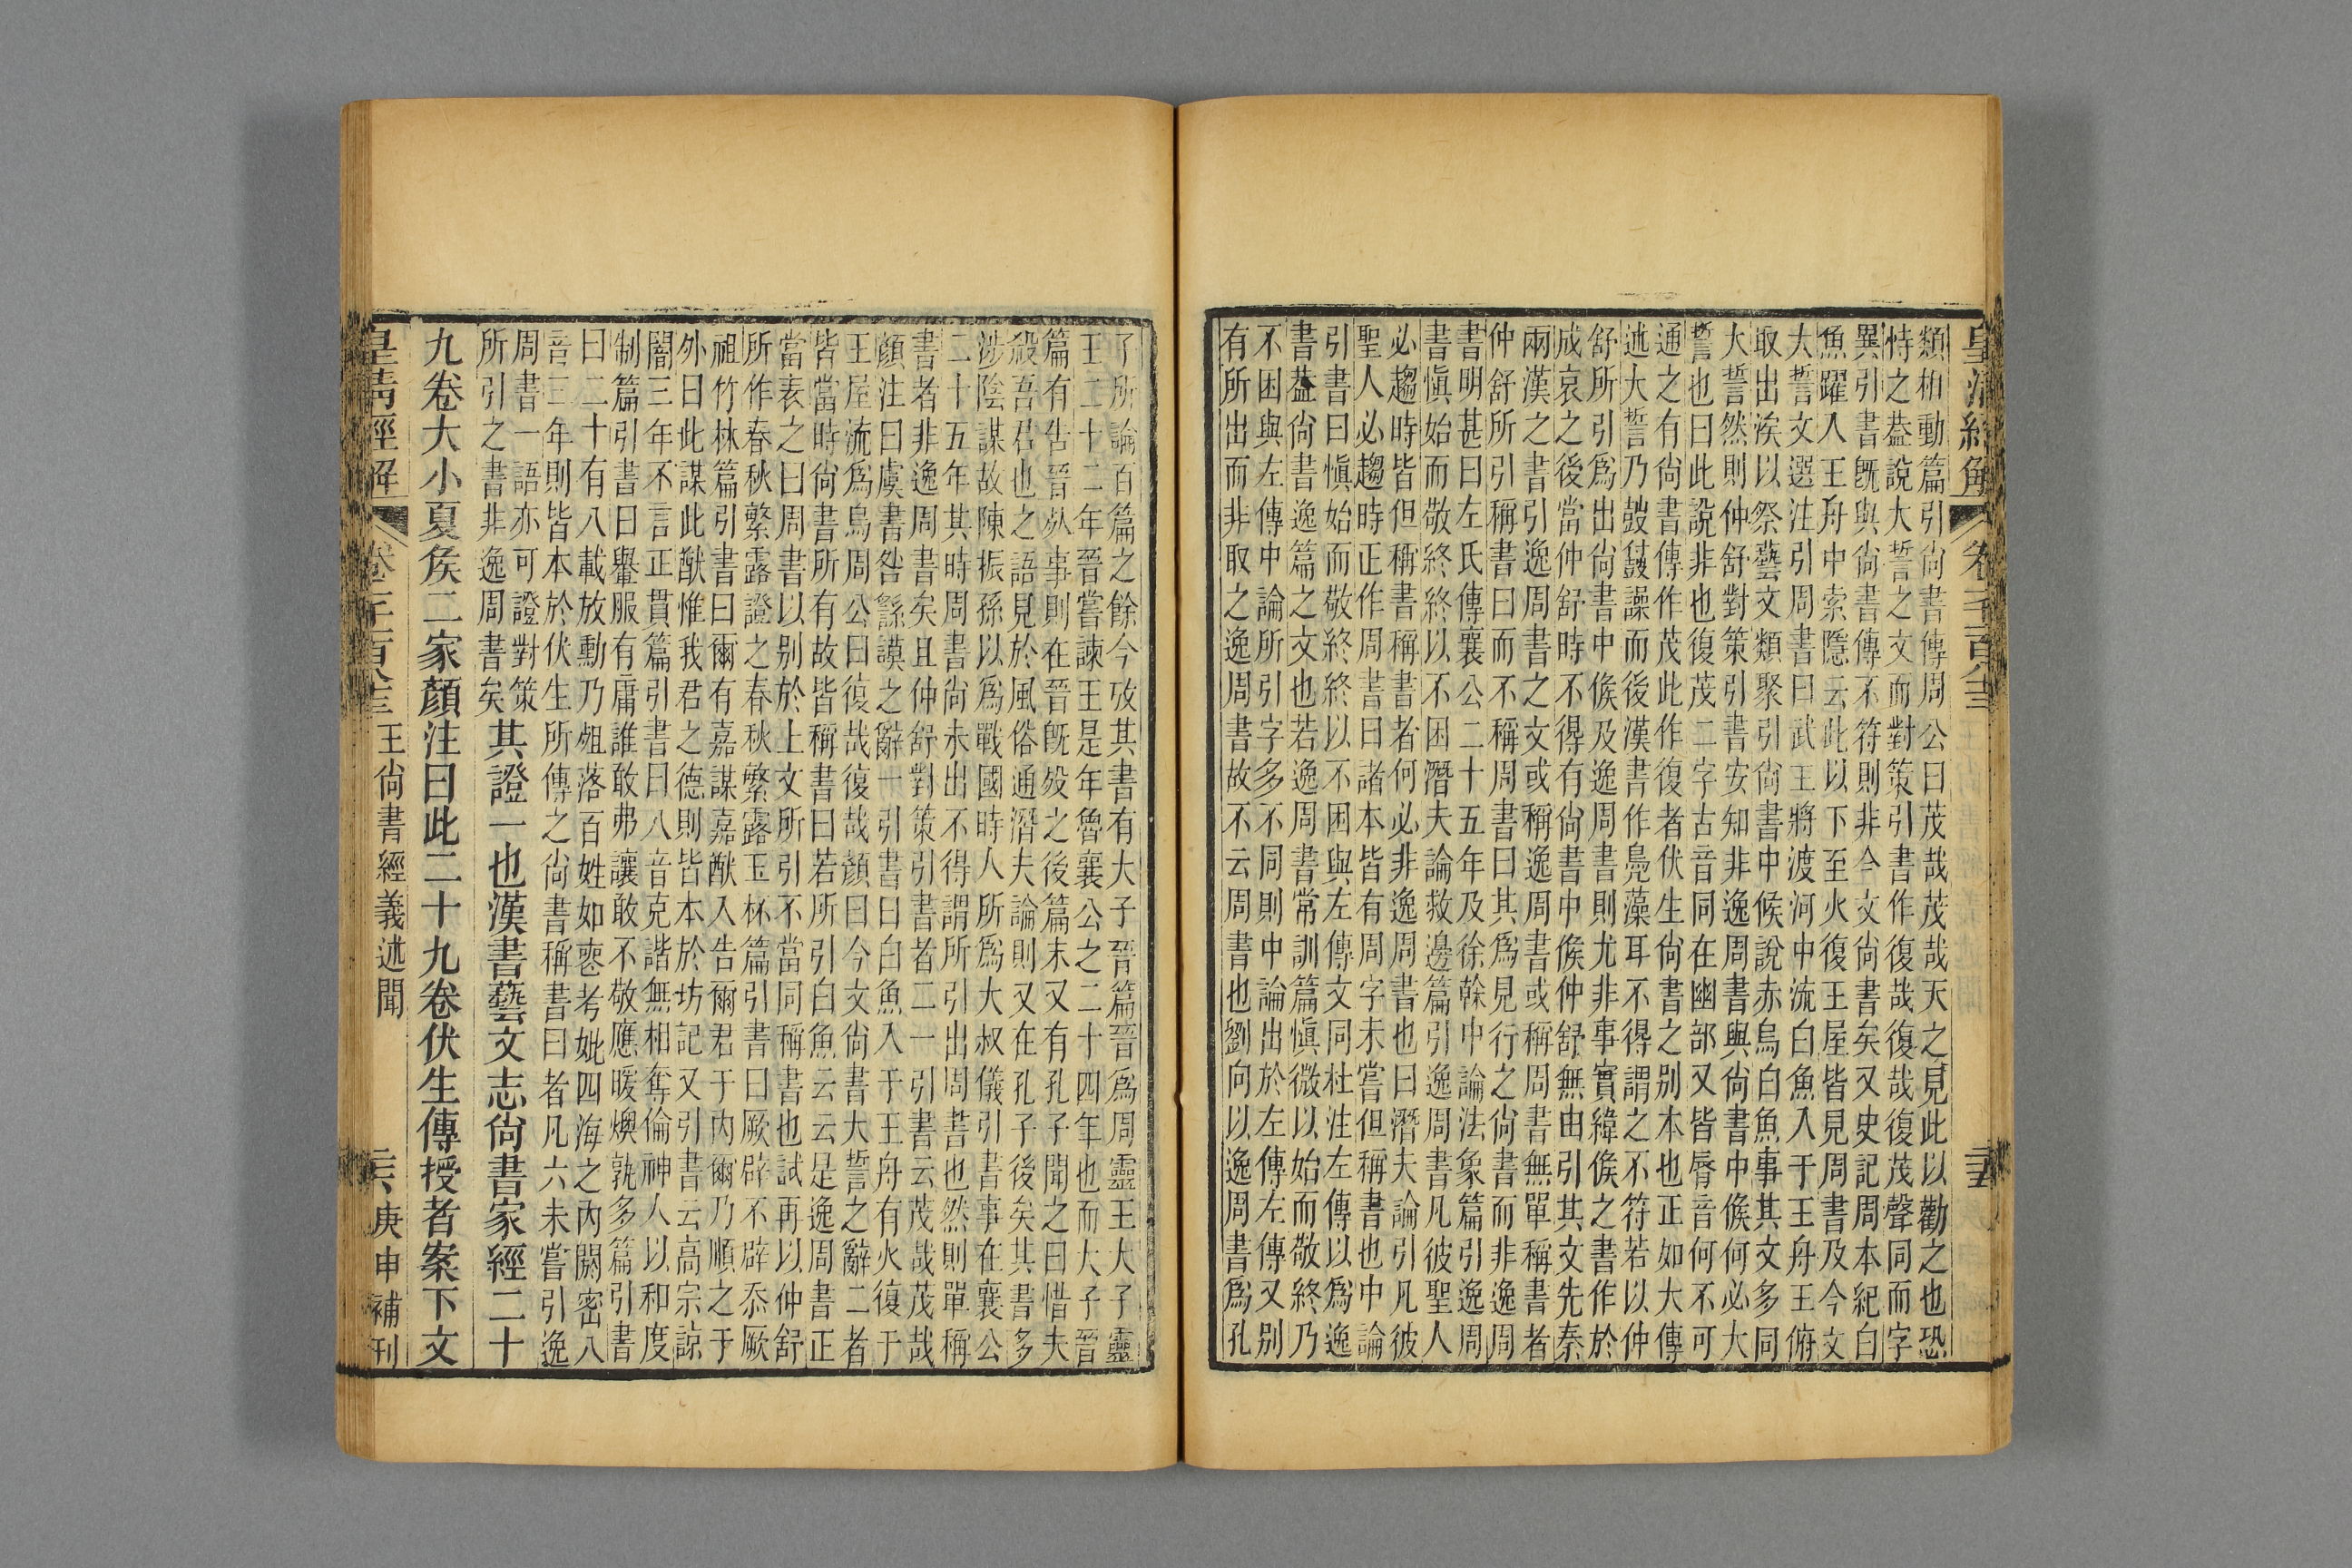 皇清經解
卷千一百八十三
二十五
類相動篇引尙書傳周公曰茂哉茂哉天之見此以勸之也恐
恃之葢說大誓之文而對策引書作復哉復哉復茂聲同而字
異引書旣與尙書傳不符則非今文尙書矣又史記周本紀白
魚躍入王舟中索隱云此以下至火復王屋皆見周書及今文
大誓文選注引周書曰武王將渡河中流白魚入于王舟王俯
取出涘以祭藝文類聚引尙書中候說赤烏白魚事其文多同
大誓然則仲舒對策引書安知非逸周書與尙書中候何必大
誓也曰此說非也復茂二字古音同在幽部又皆脣音何不可
通之有尙書傳作茂此作復者伏生尙書之別本也正如大傳
述大誓乃鼓鼜譟而後漢書作鳧藻耳不得謂之不符若以仲
舒所引爲出尙書中候及逸周書則尤非事實緯候之書作於
成哀之後當仲舒時不得有尙書中候仲舒無由引其文先秦
兩漢之書引逸周書之文或稱逸周書或稱周書無單稱書者
仲舒所引稱書曰而不稱周書曰其爲見行之尙書而非逸周
書明甚曰左氏傳襄公二十五年及徐榦中論法象篇引逸周
書愼始而敬終終以不困潛夫論救邊篇引逸周書凡彼聖人
必趨時皆但稱書稱書者何必非逸周書也曰潛夫論引凡彼
聖人必趨時正作周書曰諸本皆有周字未嘗但稱書也中論
引書曰愼始而敬終終以不困與左傳文同杜注左傳以爲逸
書葢尙書逸篇之文也若逸周書常訓篇愼微以始而敬終乃
不困與左傳中論所引字多不同則中論出於左傳左傳又别
有所出而非取之逸周書故不云周書也劉向以逸周書爲孔
子所論百篇之餘今攷其書有大子晉篇晉爲周靈王大子靈
王二十二年晉嘗諫王是年魯襄公之二十四年也而大子晉
篇有告晉㱕事則在晉旣歿之後篇末又有孔子聞之曰惜夫
殺吾君也之語見於風俗通潛夫論則又在孔子後矣其書多
涉陰謀故陳振孫以爲戰國時人所爲大叔儀引書事在襄公
二十五年其時周書尙未出不得謂所引出周書也然則單稱
書者非逸周書矣且仲舒對策引書者二一引書云茂哉茂哉
顏注曰虞書咎繇謨之辭一引書曰白魚入于王舟有火復于
王屋流爲烏周公曰復哉復哉顏曰今文尙書大誓之辭二者
皆當時尙書所有故皆稱書曰若所引白魚云云是逸周書正
當表之曰周書以别於上文所引不當同稱書也試再以仲舒
所作春秋繁露證之春秋繁露玉杯篇引書曰厥辟不辟忝厥
祖竹林篇引書曰爾有嘉謀嘉猷入告爾君于内爾乃順之于
外曰此謀此猷惟我君之德則皆本於坊記又引書云高宗諒
闇三年不言正貫篇引書曰八音克諧無相奪倫神人以和度
制篇引書曰轝服有庸誰敢弗讓敢不敬應暖燠孰多篇引書
曰二十有八載放勳乃殂落百姓如喪考妣四海之內閼密八
音三年則皆本於伏生所傳之尙書稱書曰者凡六未嘗引逸
周書一語亦可證對策
所引之書非逸周書矣其證一也漢書藝文志尙書家經二十
九卷大小夏矦二家顏注曰此二十九卷伏生傳授者案下文
皇清經解
卷千一百八十三
王尙書經義述聞
二十六
庚申補刊